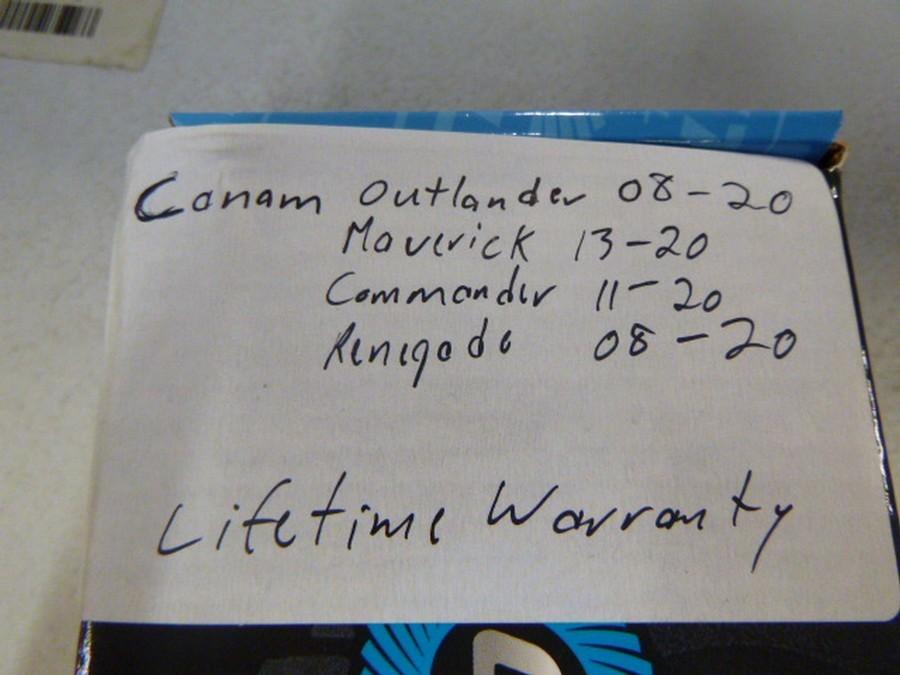 Canam Outlander 08-20
Maverick 13-20
Commander 11-20
Renegade 08-20
Lifetime Warranty